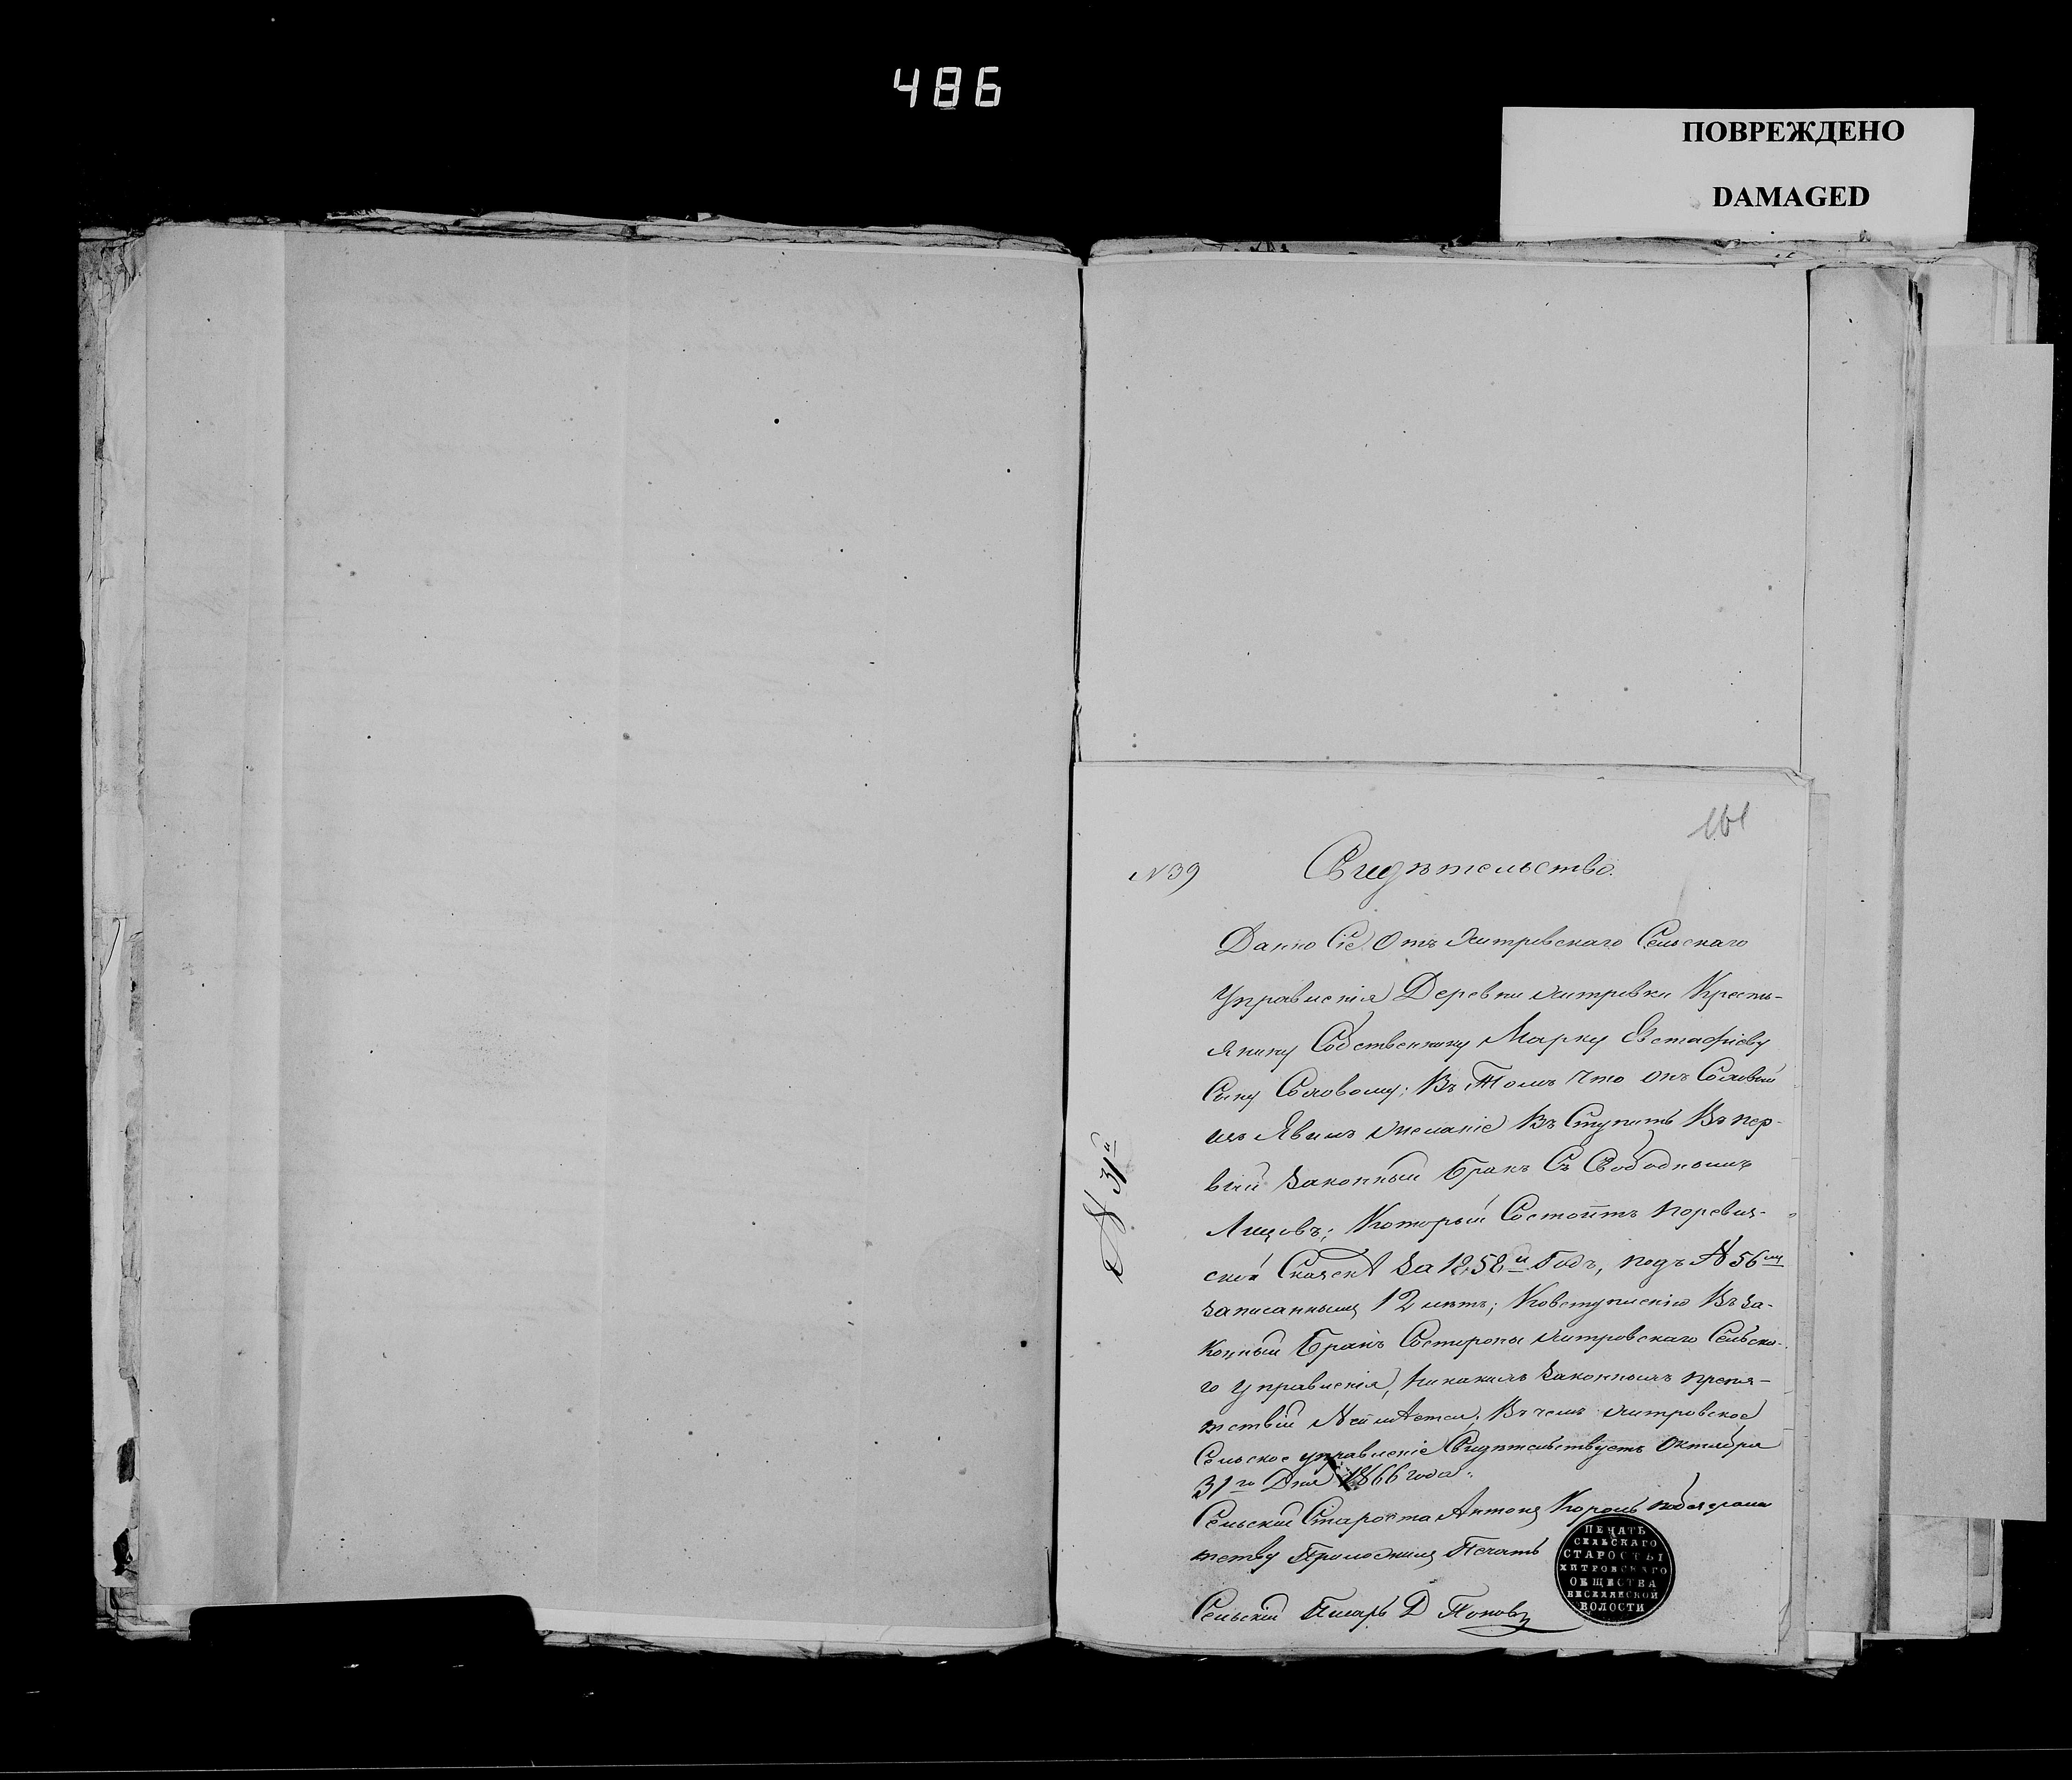 486
ПОВРЕЖДЕНО
DAMAGED
161
N 39
Свидѣтельство.
Дано Сіе Отъ Хитровскаго Сельскаго
Управленія Деревни Хитровки Кресть-
янину Собственнику Марку Евстафіеву
Сыну Соловому; Въ Томъ что онъ Соловый
изъ Явилъ желаніе Въ Ступить Въ пер-
вый Законный бракъ Съ Свободнымъ
Лицовъ; Который Состоитъ поревиз-
ской Сказкѣ За 1858й Годъ, подъ № 56мъ
записаннымъ 12 лѣтъ; Ковступленію Въ За-
конный Бракъ Состороны Хитровскаго Сельска-
го Управленія, никакихъ Законныхъ препя-
тствій Не имѣется; Въ чемъ Хитровское
Сельское управленіе Свидѣтельствуетъ Октября
31го Дня 1866 года.
Сельскій Староста Антонъ Король
Приложилъ Печать
Сельскій Писарь Д Попов
№ 31й
ПЕЧАТЬ
СЕЛЬСКАГО
СТАРОСТЫ
ХИТРОВСКАГО
ОБЩЕСТВА
ВЕСЕЛЯНСКОЙ
ВОЛОСТИ